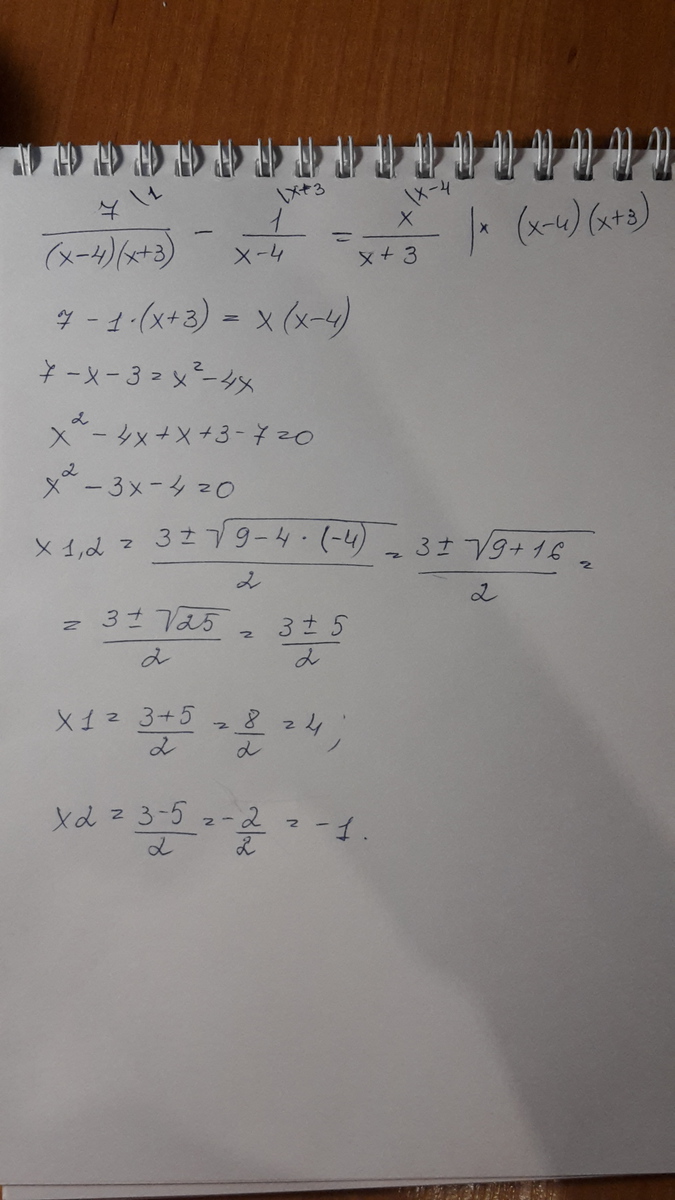 7\1 / (x-4)(x+3) - 1\x+3 / x-4 = x\x-4 / x+3 | × (x-4)(x+3)
7 - 1·(x+3) = x(x-4)
7 - x - 3 = x² - 4x
x² - 4x + x + 3 - 7 = 0
x² - 3x - 4 = 0
x1,2 = 3 ± √9 - 4·(-4) / 2 = 3 ± √9+16 / 2 =
= 3 ± √25 / 2 = 3 ± 5 / 2
x1 = 3+5 / 2 = 8 / 2 = 4;
x2 = 3-5 / 2 = - 2 / 2 = -1.